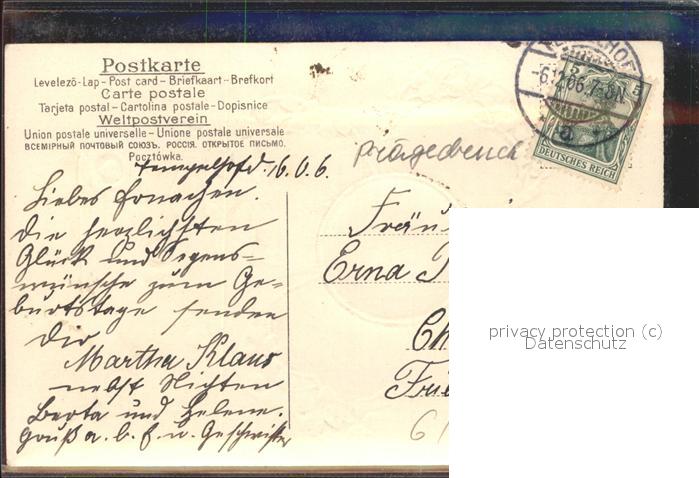 Postkarte
Levelező-Lap - Post card - Briefkaart - Brefkort
Carte postale
Tarjeta postal - Cartolina postale - Dopisnice
Weltpostverein
Union postale universelle - Unione postale universale
ВСЕМІРНЫЙ ПОЧТОВЫЙ СОЮЗЪ. РОССІЯ. ОТКРЫТОЕ ПИСЬМО.
Pocztówka.
Tempelhof d. 6.
Prägedruck
5
DEUTSCHES REICH
Liebes
die herzlichsten
Glück und Segens-
wünsche zum Ge-
burtstage senden
Dir
Martha Klaus
nebst Nichten
Berta und Helene.
Gruß a. d. E. u. Geschwister
Fräu
Erna
Ch
Frie
6
privacy protection (c)
Datenschutz